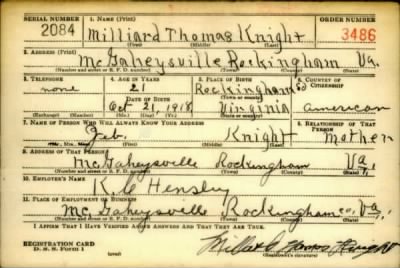 SERIAL NUMBER 1. NAME (Print) ORDER NUMBER
2084 Milliard Thomas Knight 3486
(First) (Middle) (Last)
2. ADDRESS (Print)
McGaheysville Rockingham Va.
(Number and street or R. F. D. number) (Town) (County) (State)
3. TELEPHONE 4. AGE IN YEARS 5. PLACE OF BIRTH 6. COUNTRY OF CITIZENSHIP
none 21 Rockingham Co
DATE OF BIRTH (Town or county)
Oct 21, 1918 Virginia american
(Exchange) (Number) (Mo.) (Day) (Yr.) (State or country)
7. NAME OF PERSON WHO WILL ALWAYS KNOW YOUR ADDRESS 8. RELATIONSHIP OF THAT PERSON
Geb. Knight Mother
(Mr., Mrs., Miss) (First) (Middle) (Last)
9. ADDRESS OF THAT PERSON
McGaheysville Rockingham Va,
(Number and street or R. F. D. number) (Town) (County) (State)
10. EMPLOYER'S NAME
K. C Hensley
11. PLACE OF EMPLOYMENT OR BUSINESS
McGaheysville Rockingham co, Va,
(Number and street or R. F. D. number) (Town) (County) (State)
I AFFIRM THAT I HAVE VERIFIED ABOVE ANSWERS AND THAT THEY ARE TRUE.
REGISTRATION CARD
D. S. S. Form 1 Thomas Knight
(Registrant's signature)